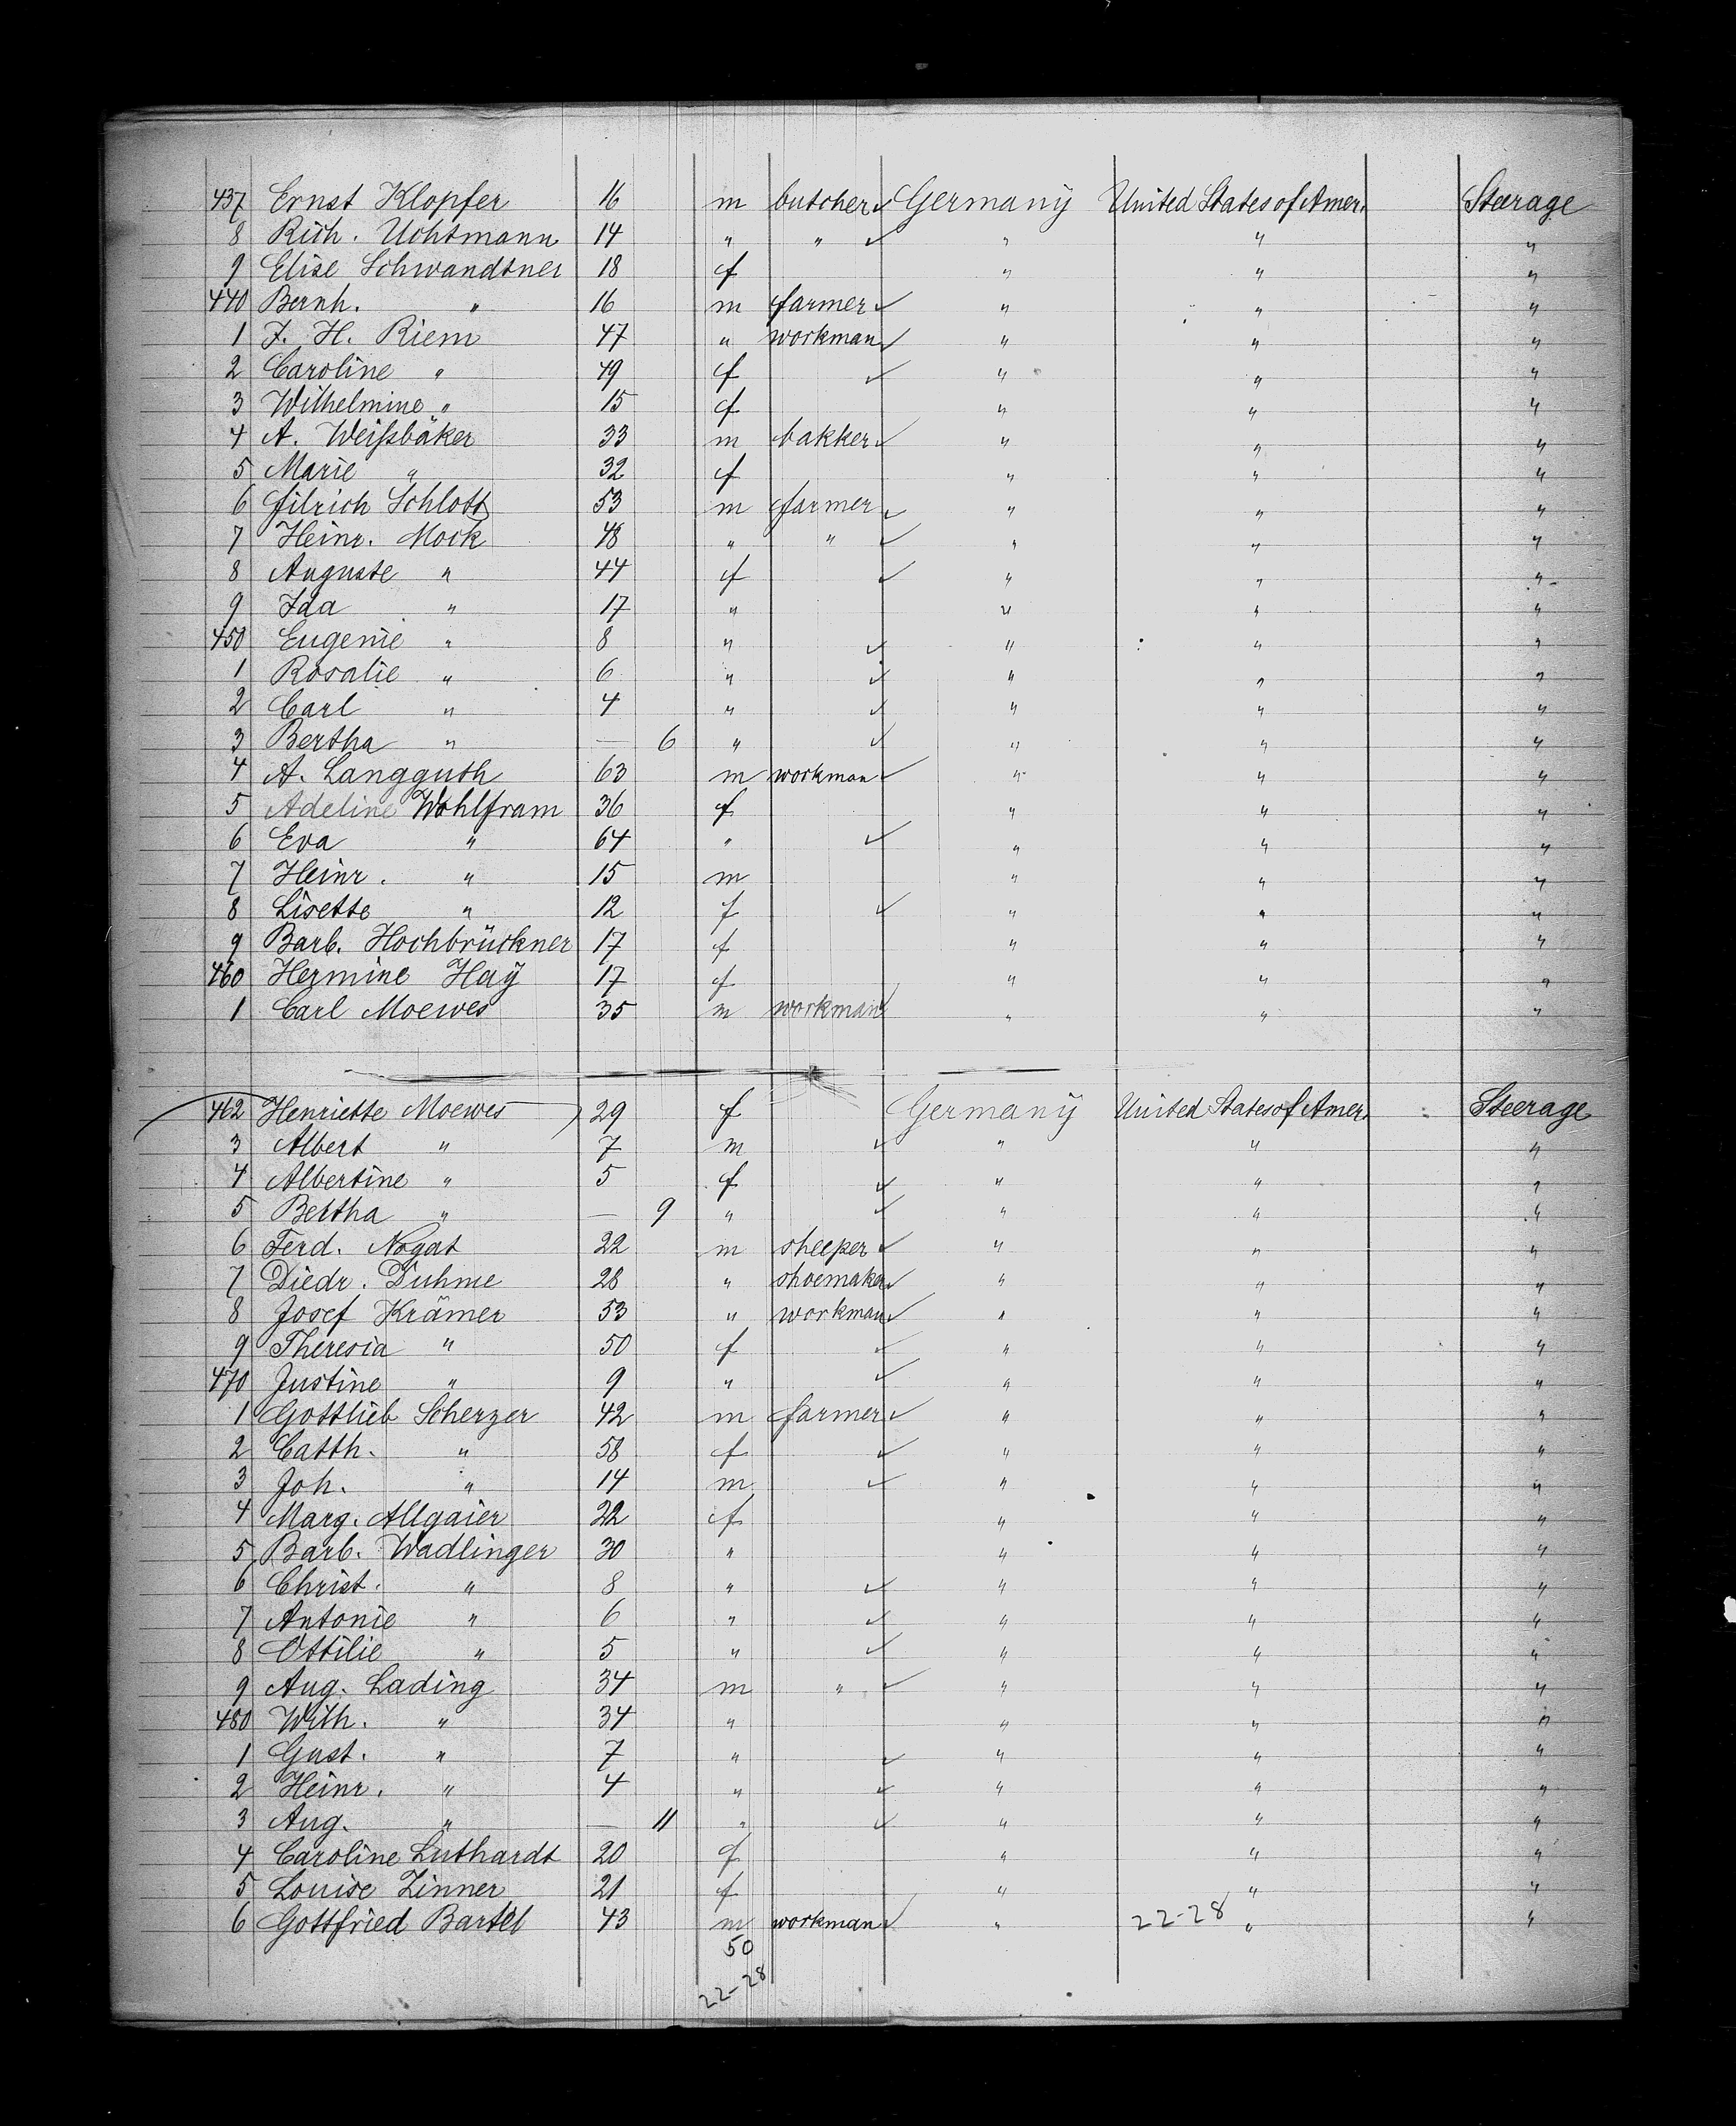 437 Ernst Klopfer 16 m butcher ✓ Germany United States of Amer. Steerage
8 Rich. Uchtmann 14 " " ✓ " " "
9 Elise Schwandtner 18 f " " "
440 Bernh. " 16 m farmer ✓ " " "
1 J. H. Riem 47 " workman ✓ " " "
2 Caroline " 49 f ✓ " " "
3 Wilhelmine " 15 f " " "
4 A. Weißbäker 33 m bakker ✓ " " "
5 Marie " 32 f " " "
6 Schlott 53 m farmer ✓ " " "
7 Heinr. Mock 48 " " ✓ " " "
8 Auguste " 44 f ✓ " " "
9 Ida " 17 " " " "
450 Eugenie " 8 " ✓ " " "
1 Rosalie " 6 " ✓ " " "
2 Carl " 4 " ✓ " " "
3 Bertha " — 6 " ✓ " " "
4 A. Langguth 63 m workman ✓ " " "
5 Adeline Wohlfram 36 f " " "
6 Eva " 64 " ✓ " " "
7 Heinr. " 15 m " " "
8 Lisette " 12 f ✓ " " "
9 Barb. Hochbrückner 17 f " " "
460 Hermine Haÿ 17 f " " "
1 Carl Moewes 35 m workman ✓ " " "
462 Henriette Moewes 29 f Germany United States of Amer. Steerage
3 Albert " 7 m ✓ " " "
4 Albertine " 5 f ✓ " " "
5 Bertha " — 9 " ✓ " " "
6 Ferd. Nogat 22 m sheeper ✓ " " "
7 Diedr. Duhme 28 " shoemaker ✓ " " "
8 Josef Krämer 53 " workman ✓ " " "
9 Theresia " 50 f ✓ " " "
470 Justine " 9 " ✓ " " "
1 Gottlieb Scherzer 42 m farmer ✓ " " "
2 Catth. " 58 f ✓ " " "
3 Joh. " 14 m ✓ " " "
4 Marg. Allgaier 22 f " " "
5 Barb. Wadlinger 30 " " " "
6 Christ. " 8 " ✓ " " "
7 Antonie " 6 " ✓ " " "
8 Ottilie " 5 " ✓ " " "
9 Aug. Lading 34 m " ✓ " " "
480 Wilh. " 34 " " " "
1 Gust. " 7 " ✓ " " "
2 Heinr. " 4 " ✓ " " "
3 Aug. " — 11 " ✓ " " "
4 Caroline Luthardt 20 f " " "
5 Louise Zinner 21 f " " "
6 Gottfried Bartel 43 m workman ✓ " 22-28 " "
50
22-28